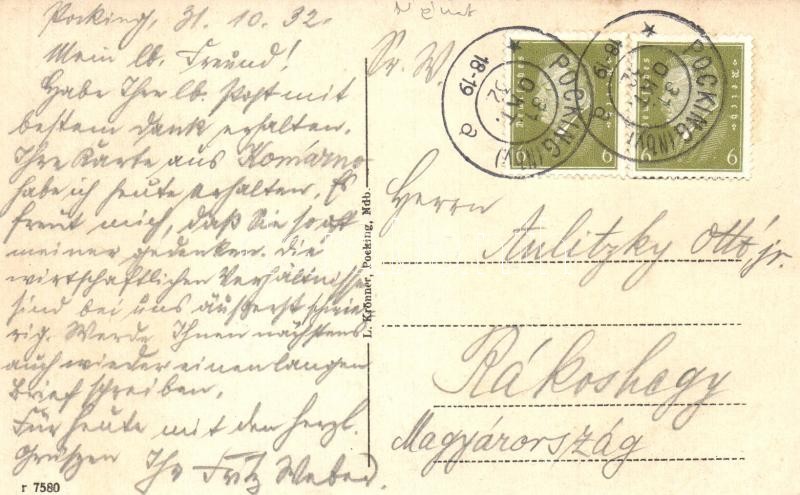 Pocking, 31.10.32.
Mein lb. Freund!
Habe Ihre lb. Post mit
bestem Dank erhalten.
Ihre Karte aus Komárno
habe ich heute erhalten. Es
freut mich, daß Sie so oft
meiner gedenken. Die
wirtschaftlichen Verhältnisse
sind bei uns äußerst schwie-
rig. Werde Ihnen nächstens
auch wieder einen langen
Brief schreiben.
Für heute mit den herzl.
Grüßen Ihr Fritz Weber.
r 7580
L. Kronner, Pocking, Ndb.
Sr. W.
POCKING (NDB.)
31.
OKT.
32
18-19
a
POCKING (NDB.)
31.
OKT.
32
18-19
a
Deutsches Reich
6 6
Deutsches Reich
6 6
Herrn
Aulitzky Ottó, jr.
Rákoshegy
Magyarország